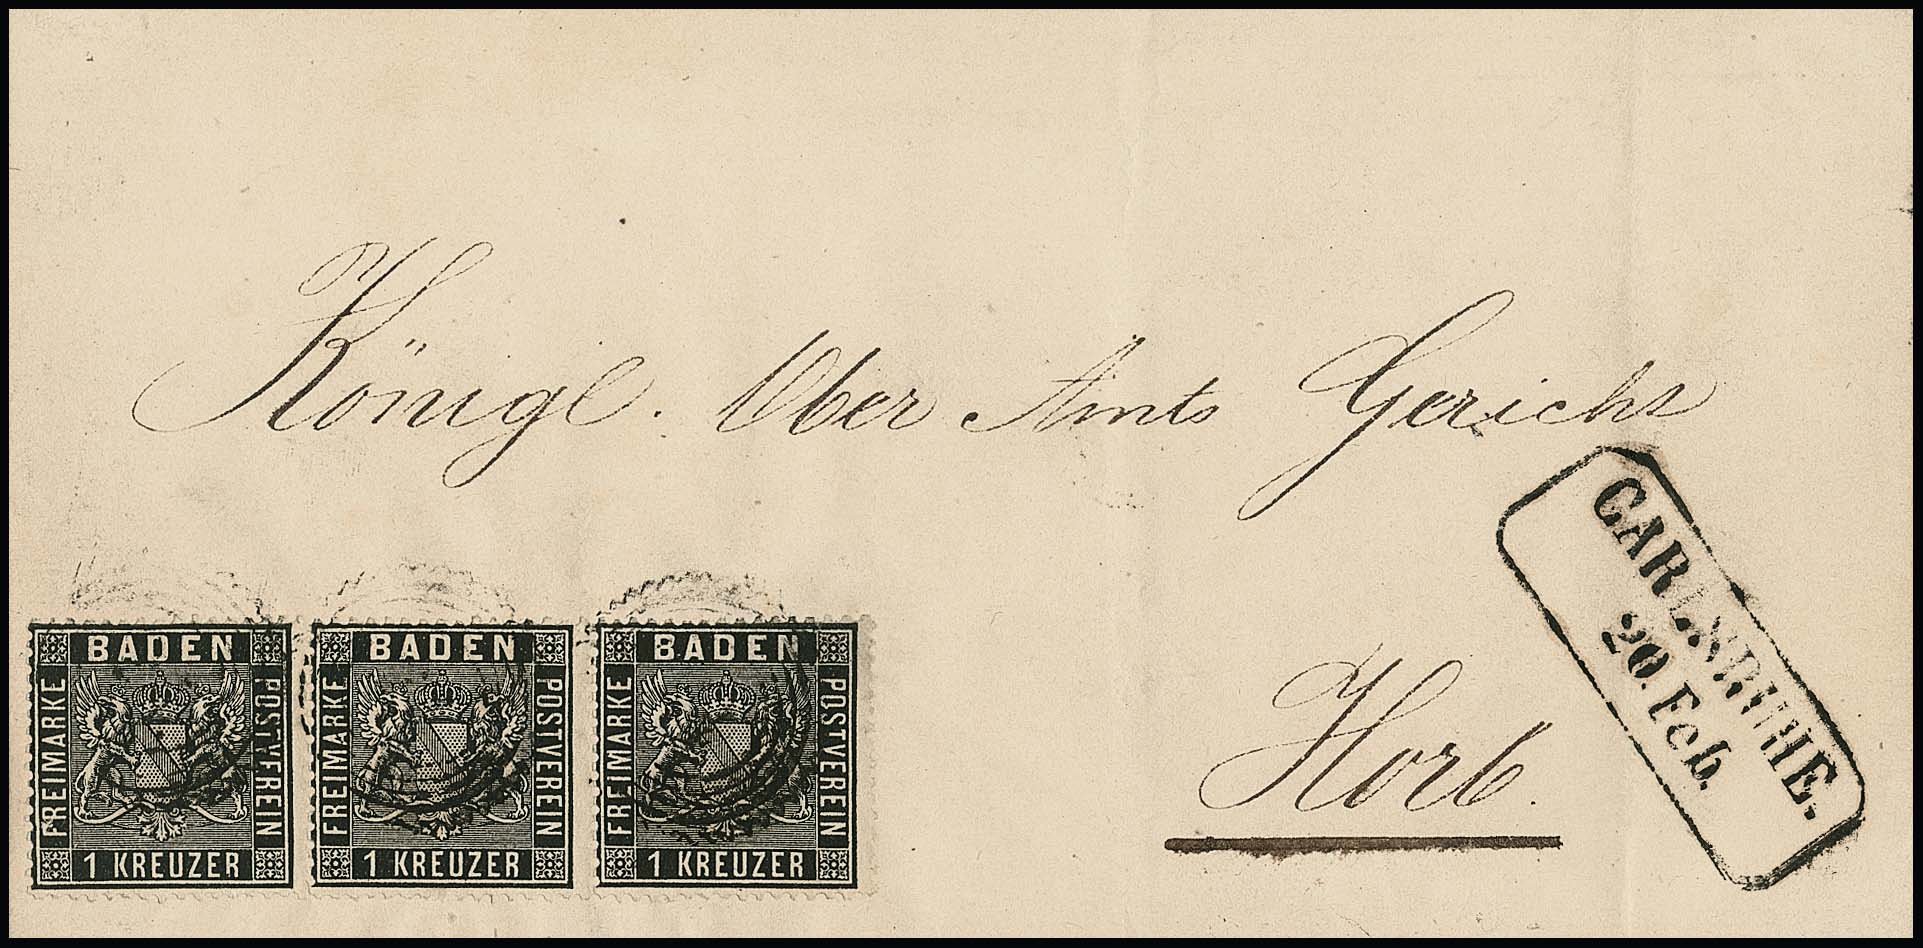 Königl. Ober Amts Gericht
Horb.
CARLSRUHE.
20. Feb.
BADEN
FREIMARKE
POSTVEREIN
1 KREUZER
BADEN
FREIMARKE
POSTVEREIN
1 KREUZER
BADEN
FREIMARKE
POSTVEREIN
1 KREUZER